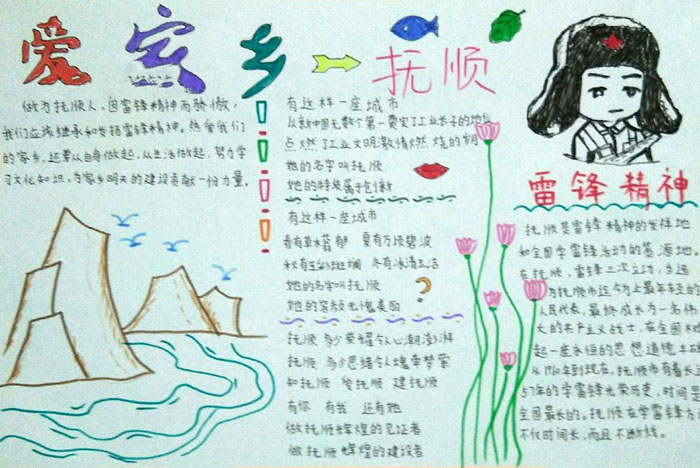 爱家乡
抚顺
做为抚顺人，因雷锋精神而骄傲，
我们应该继承和发扬雷锋精神。热爱我们
的家乡，还要从自身做起，从生活做起，努力学
习文化知识，为家乡明天的建设贡献一份力量。
有这样一座城市
从新中国无数个第一奠定了工业长子的地位
点燃了工业文明激情燃烧的
她的名字叫抚顺
她的特装属于创新
有这样一座城市
春有草木蓊郁 夏有万顷碧波
秋有玉彩斑斓 冬有冰清玉洁
她的名字叫抚顺
她的容颜无愧美丽
抚顺 多少荣耀令人心潮澎湃
抚顺 多少思绪令人魂牵梦萦
知抚顺 爱抚顺 建抚顺
有你 有我 还有她
做抚顺辉煌的见证者
做抚顺辉煌的建设者
雷锋精神
抚顺是雷锋精神的发祥地
和全国学雷锋活动的策源地。
在抚顺，雷锋三次立功，当选
为抚顺市迄今为止最年轻的
人民代表，最终成长为一名伟
大的共产主义战士，在全国树
起一座永恒的思想道德丰
从1960年到现在，抚顺市有着长
57年的学雷锋光荣历史，时间是
全国最长的。抚顺在学雷锋方
不仅时间长，而且不断线。